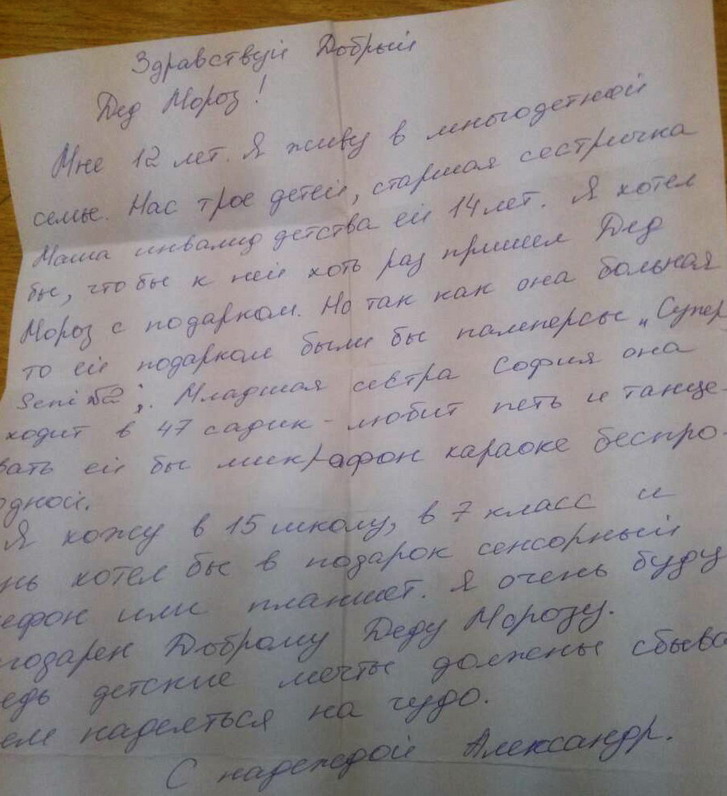 Здравствуй Добрый
Дед Мороз!
Мне 12 лет. Я живу в многодетной
семье. Нас трое детей, старшая сестричка
Маша инвалид детства ей 14 лет. Я хотел
бы, чтобы к ней хоть раз пришел Дед
Мороз с подарком. Но так как она больная
то ей подарком были бы памперсы „Супер
Seni №2”. Младшая сестра София она
ходит в 47 садик - любит петь и танце-
вать ей бы микрафон караоке беспро-
одной.
Я хожу в 15 школу, в 7 класс и
нь хотел бы в подарок сенсорный
ефон или планшет. Я очень буду
годарен Доброму Деду Морозу.
едь детские мечты должны сбыва
ем надеяться на чудо.
С надеждой Александр.